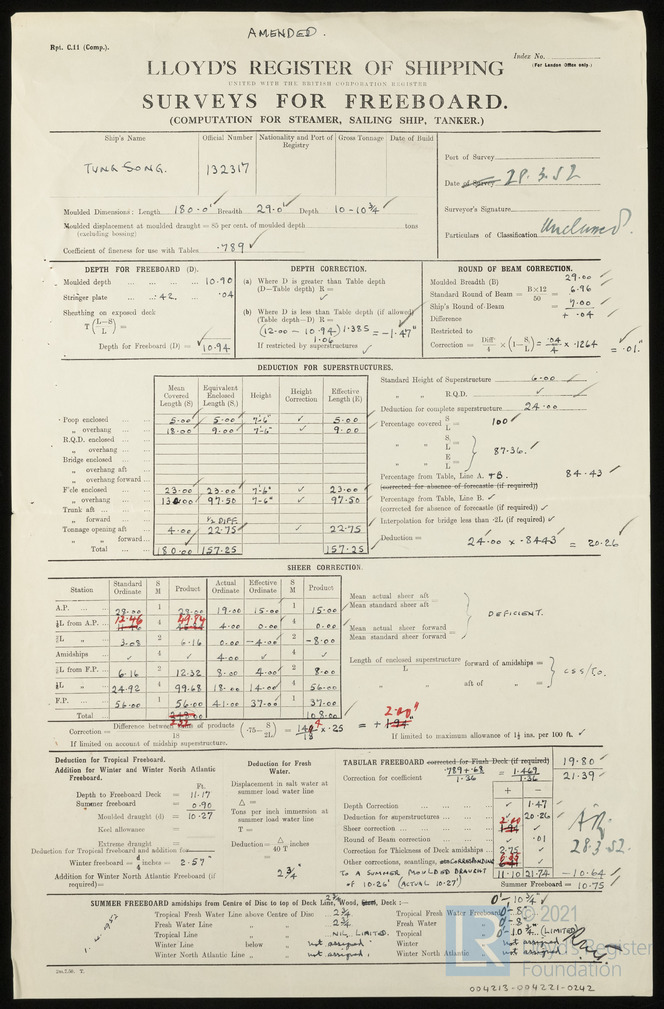 AMENDED.
Rpt. C.11 (Comp.).
Index No.
(For London Office only.)
LLOYD'S REGISTER OF SHIPPING
UNITED WITH THE BRITISH CORPORATION REGISTER
SURVEYS FOR FREEBOARD.
(COMPUTATION FOR STEAMER, SAILING SHIP, TANKER.)
Ship's Name Official Number Nationality and Port of Registry Gross Tonnage Date of Build
TUNG SONG. 132317
Port of Survey
Date of Survey 28.3.52
Surveyor's Signature
Particulars of Classification Unclassed.
Moulded Dimensions: Length 180.0' Breadth 29.0' Depth 10-10¾
Moulded displacement at moulded draught = 85 per cent. of moulded depth tons
(excluding bossing)
Coefficient of fineness for use with Tables .789
DEPTH FOR FREEBOARD (D).
Moulded depth 10.90
Stringer plate .42. .04
Sheathing on exposed deck
T(L-S/L) =
Depth for Freeboard (D) = 10.94
DEPTH CORRECTION.
(a) Where D is greater than Table depth
(D—Table depth) R =
(b) Where D is less than Table depth (if allowed)
(Table depth—D) R =
(12.00 - 10.94) 1.385 = -1.47"
1.06
If restricted by superstructures
ROUND OF BEAM CORRECTION.
Moulded Breadth (B) 29.00
Standard Round of Beam = B×12/50 = 6.96
Ship's Round of Beam = 7.00
Difference + .04
Restricted to
Correction = Diff/4 × (1-S/L) = .04/4 × .1264 = .01"
DEDUCTION FOR SUPERSTRUCTURES.
Mean Covered Length (S) Equivalent Enclosed Length (S₁) Height Height Correction Effective Length (E)
Poop enclosed 5.00 5.00 7-6" 5.00
„ overhang 18.00 9.00 7-6" 9.00
R.Q.D. enclosed
„ overhang
Bridge enclosed
„ overhang aft
„ overhang forward
F'cle enclosed 23.00 23.00 7-6" 23.00
„ overhang 130.00 97.50 7-6" 97.50
Trunk aft
„ forward ½ DIFF.
Tonnage opening aft 4.00 22.75 22.75
„ „ forward
Total 180.00 157.25 157.25
Standard Height of Superstructure 6.00
„ „ R.Q.D.
Deduction for complete superstructure 24.00
Percentage covered S/L = 100
„ „ S₁/L =
„ „ E/L = } 87.36.
Percentage from Table, Line A. TB. 84.43
(corrected for absence of forecastle (if required))
Percentage from Table, Line B.
(corrected for absence of forecastle (if required))
Interpolation for bridge less than .2L (if required)
Deduction = 24.00 × .8443 = 20.26
SHEER CORRECTION.
Station Standard Ordinate S M Product Actual Ordinate Effective Ordinate S M Product
A.P. 28.00 1 28.00 19.00 15.00 1 15.00
⅙L from A.P. 12.46 4 49.84 4.00 0.00 4 0.00
⅓L „ 3.08 2 6.16 0.00 -4.00 2 -8.00
Amidships 4 4.00 4
⅓L from F.P. 6.16 2 12.32 8.00 4.00 2 8.00
⅙L „ 24.92 4 99.68 18.00 14.00 4 56.00
F.P. 56.00 1 56.00 41.00 37.00 1 37.00
Total 108.00
Mean actual sheer aft =
Mean standard sheer aft
Mean actual sheer forward =
Mean standard sheer forward
DEFICIENT.
Length of enclosed superstructure/L forward of amidships =
„ „ aft of „ =
Correction = Difference between sums of products/18 (.75—S/2L) = × .25 = + 2.00"
If limited on account of midship superstructure.
If limited to maximum allowance of 1½ ins. per 100 ft.
Deduction for Tropical Freeboard.
Addition for Winter and Winter North Atlantic Freeboard.
Ft.
Depth to Freeboard Deck = 11.17
Summer freeboard = 0.90
Moulded draught (d) = 10.27
Keel allowance =
Extreme draught =
Deduction for Tropical freeboard and addition for
Winter freeboard = d/4 inches = 2.57"
Addition for Winter North Atlantic Freeboard (if required) =
Deduction for Fresh Water.
Displacement in salt water at summer load water line
Δ =
Tons per inch immersion at summer load water line
T =
Deduction = Δ/40 T inches
= 2¾"
TABULAR FREEBOARD corrected for Flush Deck (if required) 19.80
Correction for coefficient .789+.68/1.36 = 1.469/1.36 21.39
+ −
Depth Correction 1.47
Deduction for superstructures 20.26
Sheer correction 2.00
Round of Beam correction .01
Correction for Thickness of Deck amidships 2.75
Other corrections, scantlings, CORRESPONDING
TO A SUMMER MOULDED DRAUGHT
OF 10.26' (ACTUAL 10.27')
11.10 21.74 -10.64
Summer Freeboard = 10.75
28.3.52.
SUMMER FREEBOARD amidships from Centre of Disc to top of Deck Line, Wood, Steel, Deck:— 0'- 10¾"
Tropical Fresh Water Line above Centre of Disc 2¾
Fresh Water Line „ „ 2¾
Tropical Line „ „ NIL LIMITED.
Winter Line below „ not assigned
Winter North Atlantic Line „ „ not assigned.
Tropical Fresh Water Freeboard 0'- 8"
Fresh Water „ 0'- 8"
Tropical „ 0'- 10¾" (LIMITED)
Winter „ not assigned
Winter North Atlantic „ not assigned
© 2021
LR
Lloyd's Register
Foundation
2m.7.50. T.
004213-004221-0242